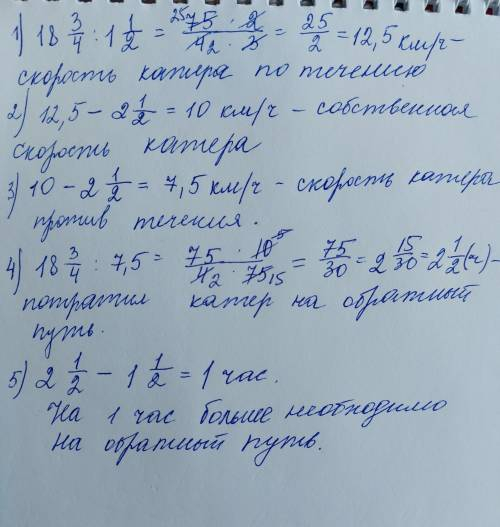 1) 18 3/4 : 1 1/2 = 25 75 · 2 / 4 2 · 3 = 25/2 = 12,5 км/ч –
скорость катера по течению
2) 12,5 – 2 1/2 = 10 км/ч – собственная
скорость катера
3) 10 – 2 1/2 = 7,5 км/ч – скорость катера
против течения.
4) 18 3/4 : 7,5 = 75 · 10 5 / 4 2 · 75 15 = 75/30 = 2 15/30 = 2 1/2 (ч) –
потратил катер на обратный
путь.
5) 2 1/2 – 1 1/2 = 1 час.
На 1 час больше необходимо
на обратный путь.